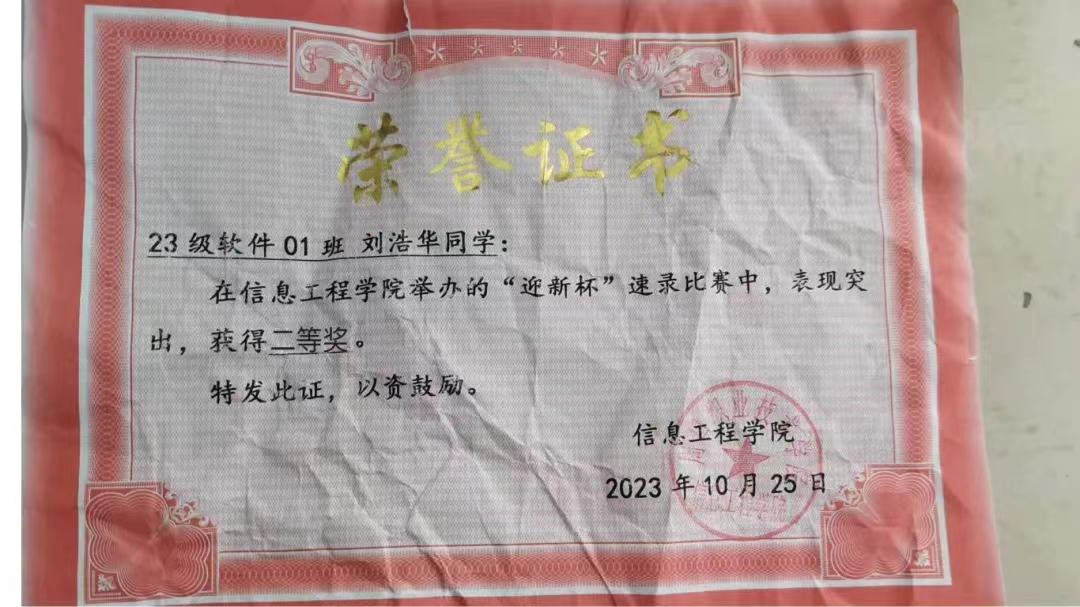 荣誉证书
23级软件01班 刘浩华同学：
在信息工程学院举办的“迎新杯”速录比赛中，表现突
出，获得二等奖。
特发此证，以资鼓励。
信息工程学院
2023年10月25日
职业技术学院
信息工程学院